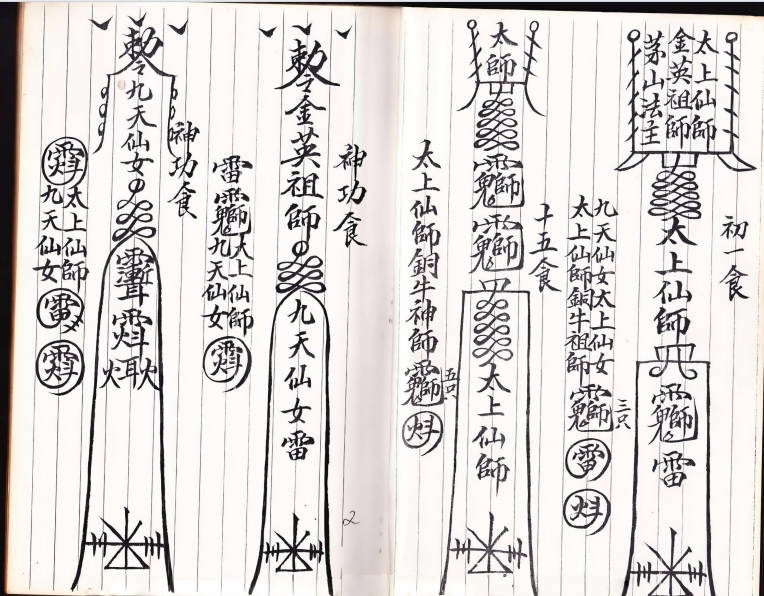 太上仙師
金英祖師
茅山法主
太上仙師
雷
初一食
九天仙女太上仙女
太上仙師銅牛祖師
三只
雷
太師
太上仙師
十五食
太上仙師銅牛神師
五只
神功食
勅令金英祖師
九天仙女雷
雷
太上仙師
九天仙女
2
神功食
勅令九天仙女
太上仙師
九天仙女
雷